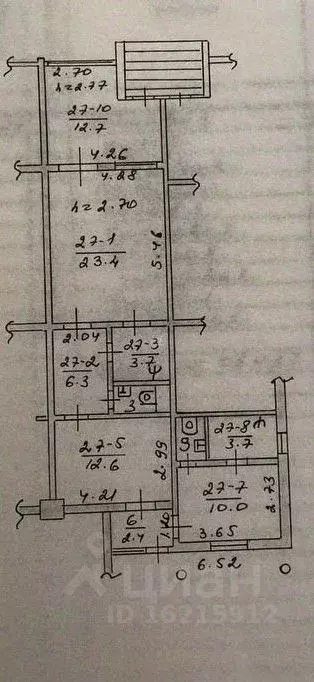 2.70
h=2.77
27-10
12.7
4.26
4.28
h=2.70
27-1
23.4
5.46
2.04
27-2
6.3
27-3
3.7
3
27-5
12.6
2.99
4.21
27-8
3.7
9
27-7
10.0
2.73
3.65
6
2.4
6.52
циан
ID 16215912